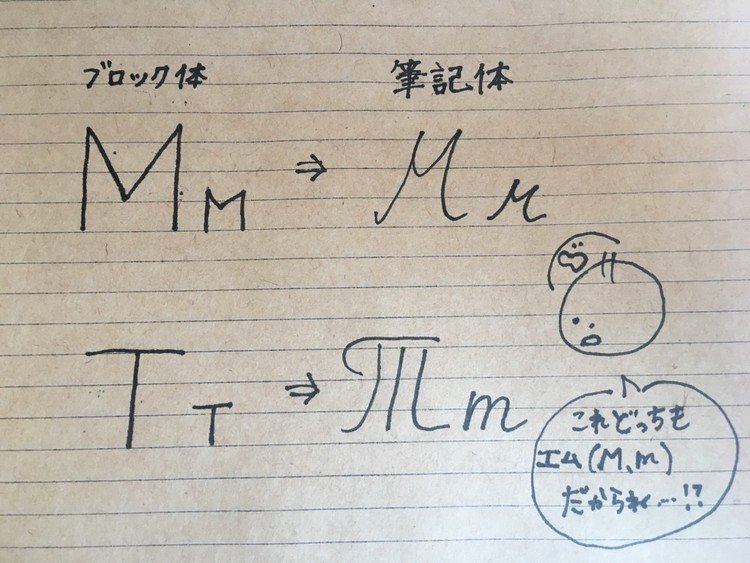 ブロック体 筆記体
М м ⇒ М м
Т т ⇒ Т т
これどっちも
エム(M、m)
だからね…!?